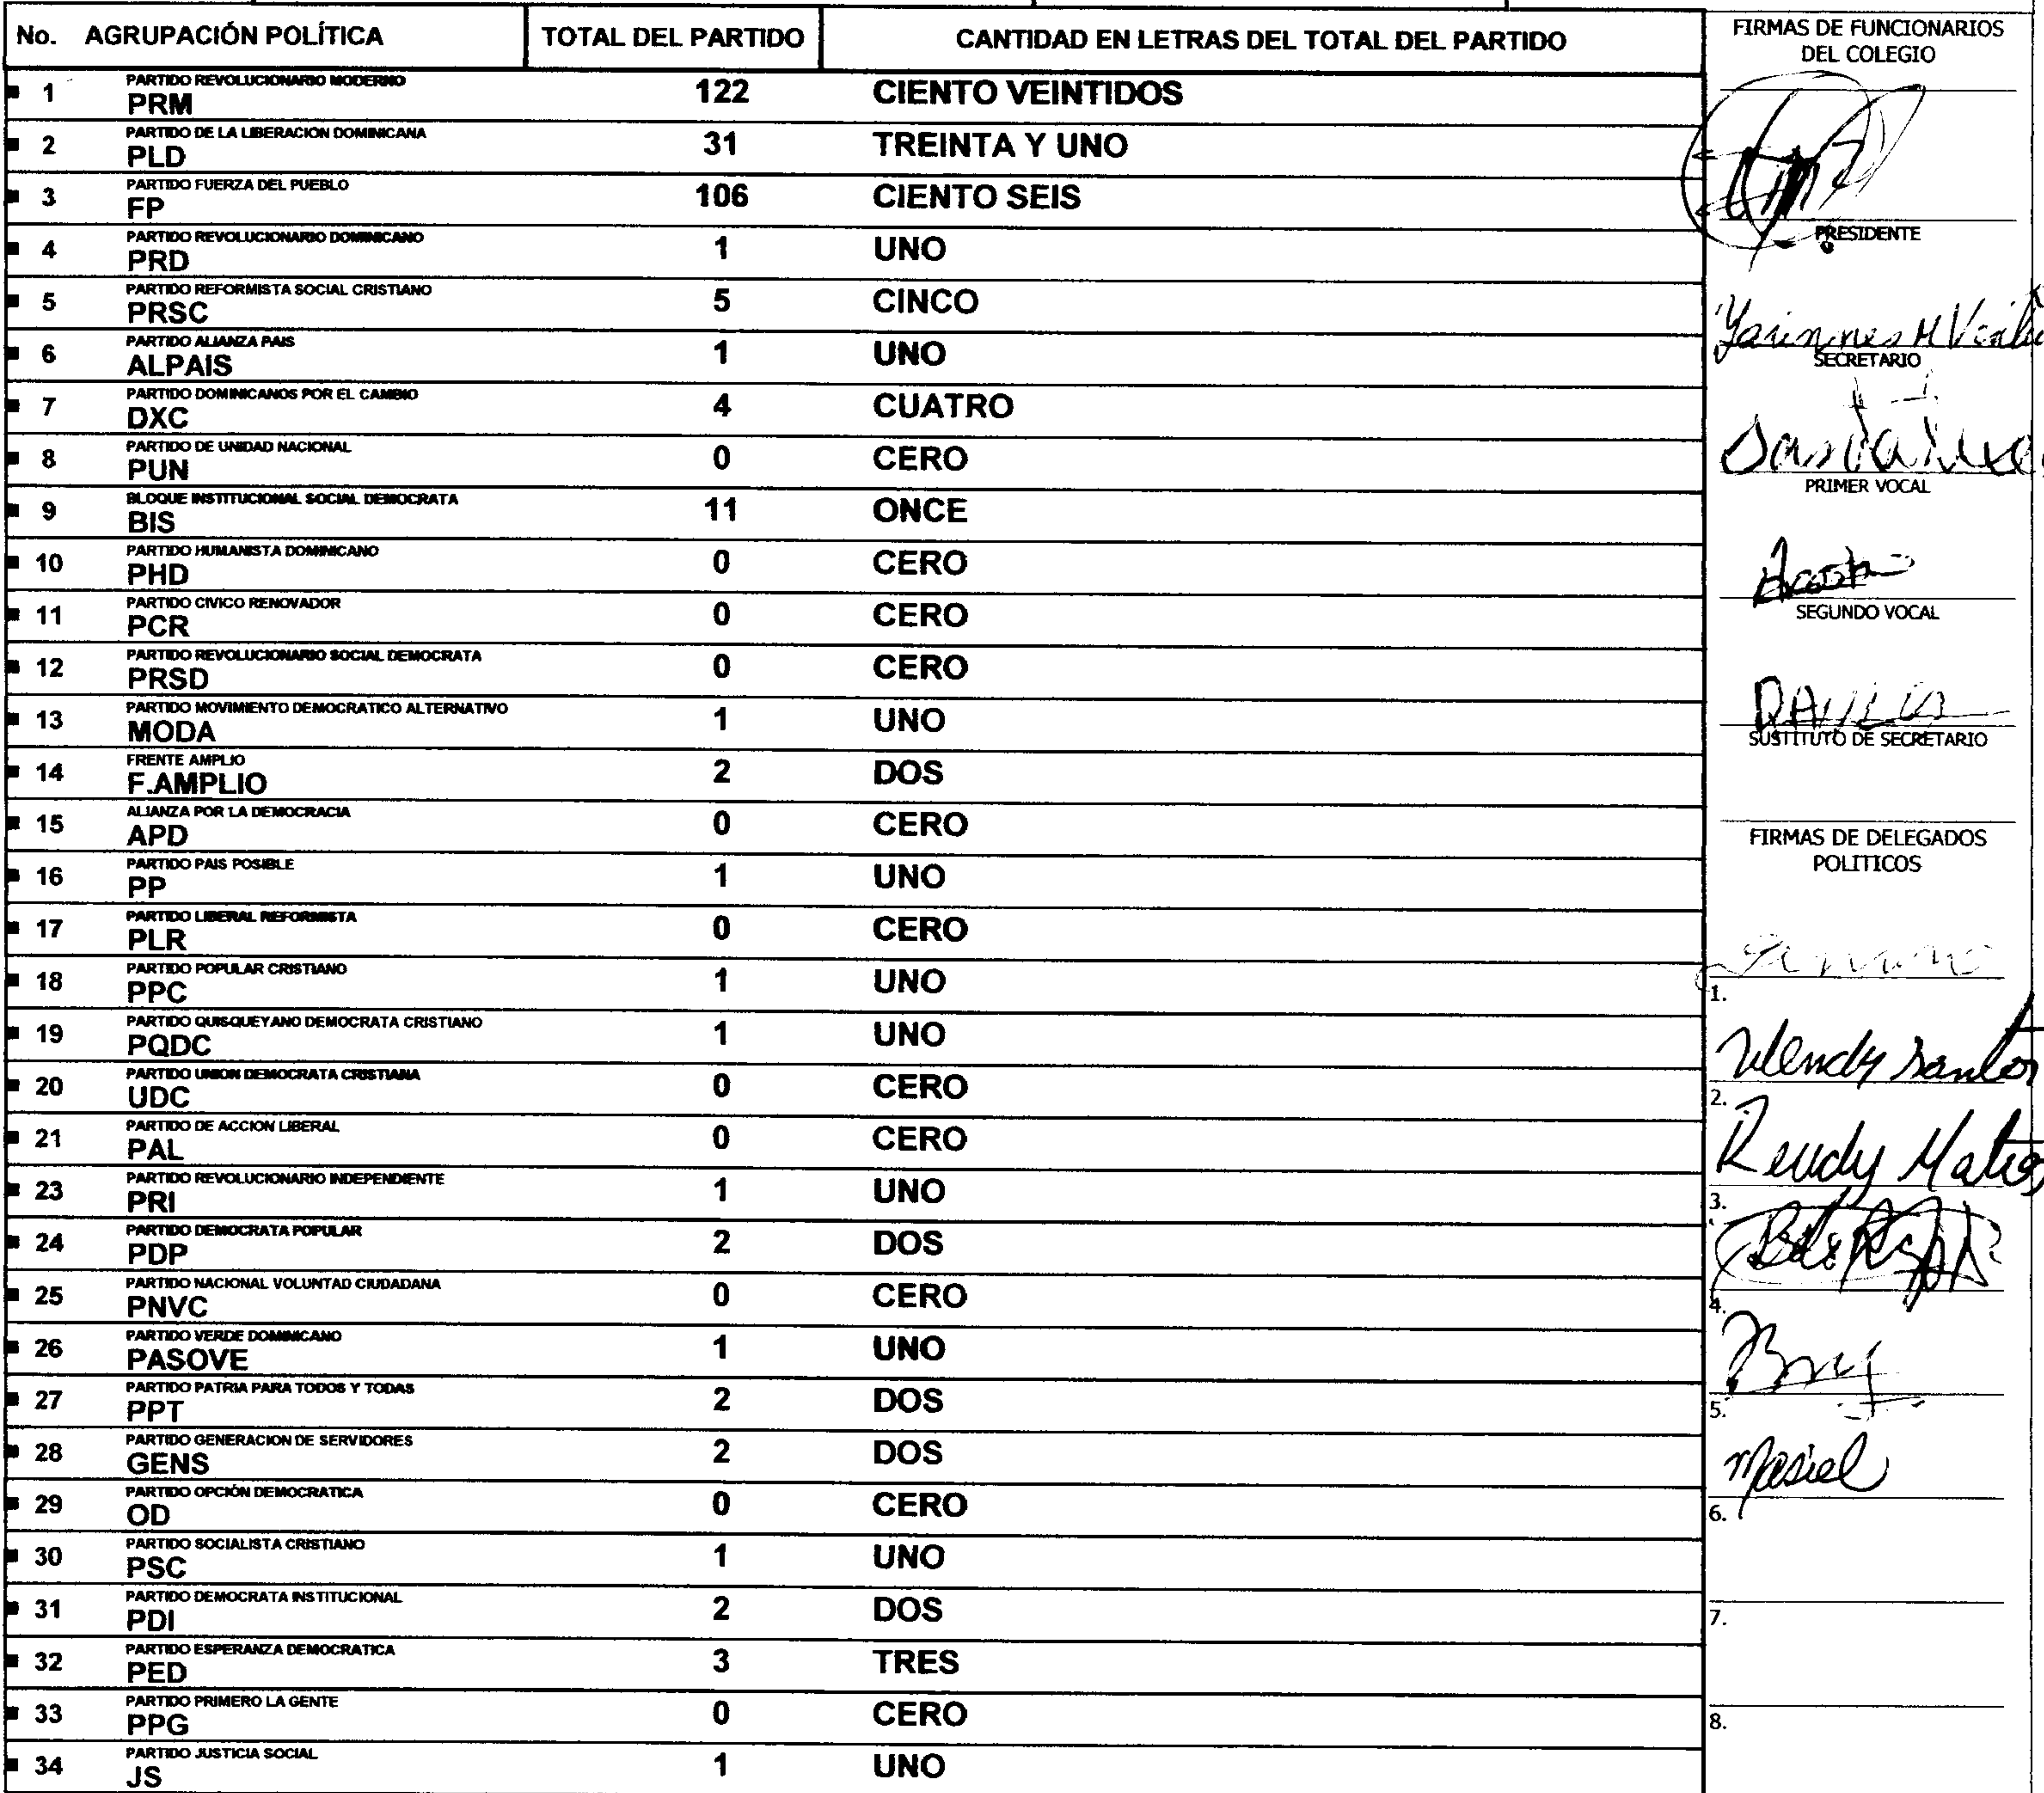 No. AGRUPACIÓN POLÍTICA TOTAL DEL PARTIDO CANTIDAD EN LETRAS DEL TOTAL DEL PARTIDO
PARTIDO REVOLUCIONARIO MODERNO
1 PRM 122 CIENTO VEINTIDOS
PARTIDO DE LA LIBERACION DOMINICANA
2 PLD 31 TREINTA Y UNO
PARTIDO FUERZA DEL PUEBLO
3 FP 106 CIENTO SEIS
PARTIDO REVOLUCIONARIO DOMINICANO
4 PRD 1 UNO
PARTIDO REFORMISTA SOCIAL CRISTIANO
5 PRSC 5 CINCO
PARTIDO ALIANZA PAIS
6 ALPAIS 1 UNO
PARTIDO DOMINICANOS POR EL CAMBIO
7 DXC 4 CUATRO
PARTIDO DE UNIDAD NACIONAL
8 PUN 0 CERO
BLOQUE INSTITUCIONAL SOCIAL DEMOCRATA
9 BIS 11 ONCE
PARTIDO HUMANISTA DOMINICANO
10 PHD 0 CERO
PARTIDO CIVICO RENOVADOR
11 PCR 0 CERO
PARTIDO REVOLUCIONARIO SOCIAL DEMOCRATA
12 PRSD 0 CERO
PARTIDO MOVIMIENTO DEMOCRATICO ALTERNATIVO
13 MODA 1 UNO
FRENTE AMPLIO
14 F.AMPLIO 2 DOS
ALIANZA POR LA DEMOCRACIA
15 APD 0 CERO
PARTIDO PAIS POSIBLE
16 PP 1 UNO
PARTIDO LIBERAL REFORMISTA
17 PLR 0 CERO
PARTIDO POPULAR CRISTIANO
18 PPC 1 UNO
PARTIDO QUISQUEYANO DEMOCRATA CRISTIANO
19 PQDC 1 UNO
PARTIDO UNION DEMOCRATA CRISTIANA
20 UDC 0 CERO
PARTIDO DE ACCION LIBERAL
21 PAL 0 CERO
PARTIDO REVOLUCIONARIO INDEPENDIENTE
23 PRI 1 UNO
PARTIDO DEMOCRATA POPULAR
24 PDP 2 DOS
PARTIDO NACIONAL VOLUNTAD CIUDADANA
25 PNVC 0 CERO
PARTIDO VERDE DOMINICANO
26 PASOVE 1 UNO
PARTIDO PATRIA PARA TODOS Y TODAS
27 PPT 2 DOS
PARTIDO GENERACION DE SERVIDORES
28 GENS 2 DOS
PARTIDO OPCIÓN DEMOCRATICA
29 OD 0 CERO
PARTIDO SOCIALISTA CRISTIANO
30 PSC 1 UNO
PARTIDO DEMOCRATA INSTITUCIONAL
31 PDI 2 DOS
PARTIDO ESPERANZA DEMOCRATICA
32 PED 3 TRES
PARTIDO PRIMERO LA GENTE
33 PPG 0 CERO
PARTIDO JUSTICIA SOCIAL
34 JS 1 UNO
FIRMAS DE FUNCIONARIOS
DEL COLEGIO
PRESIDENTE
SECRETARIO
PRIMER VOCAL
Acosta
SEGUNDO VOCAL
SUSTITUTO DE SECRETARIO
FIRMAS DE DELEGADOS
POLITICOS
1.
Wendy Santos
2.
3.
4.
5.
Masiel
6.
7.
8.